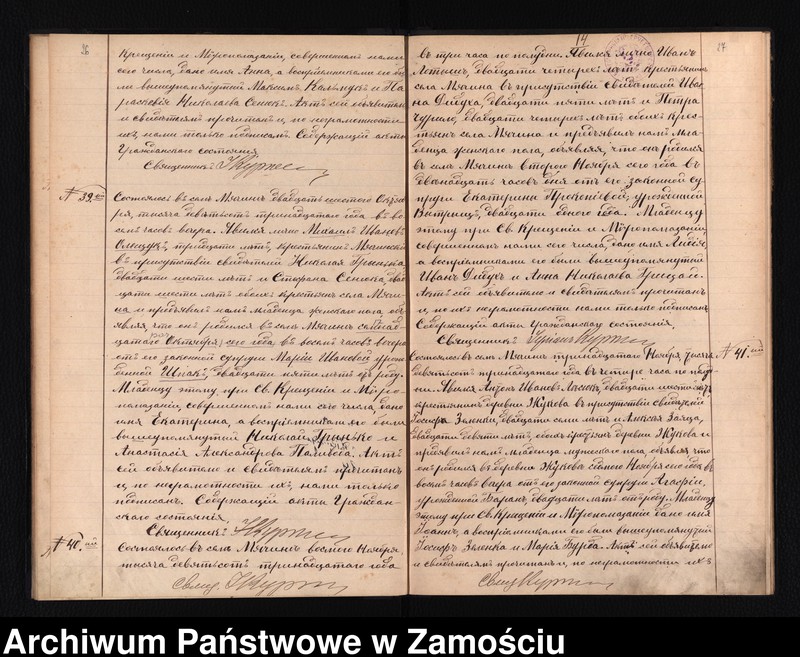 26
Крещеніи и Мѵропомазаніи, совершенномъ нами
сего числа, дано имя Анна, а воспріемниками его бы
ли вышеупомянутый Максимъ и Па
расковія Николаева Сенюкъ. Актъ сей объявителю
и свидѣтелямъ прочитанъ и, по неграмотности
ихъ, нами только подписанъ. Содержащій акты
Гражданскаго состоянія
Священникъ: Куркевичъ
№ 39.
Состоялось въ селѣ Мягинѣ двадцать шестого Октяб
ря, тысяча девятьсотъ тринадцатаго года въ во
семь часовъ вечера. Явился лично Михаилъ Ивановъ
тридцати лѣтъ, крестьянинъ
въ присутствіи свидѣтелей Николая Гринько
двадцати шести лѣтъ и Стефана Сенюка, двад
цати шести лѣтъ обоихъ крестьянъ села Мяги
на и предъявилъ намъ младенца женскаго пола, объ
являя, что онъ родился въ селѣ Мягинѣ
цатаго Октября сего года въ восемь часовъ вечера
отъ его законной супруги Маріи Ивановой урож
денной Шпакъ, двадцати пяти лѣтъ отъ роду.
Младенцу этому при Св. Крещеніи и Мѵро
помазаніи, совершенномъ нами сего числа, дано
имя Екатерина, а воспріемниками его были
вышеупомянутый Николай Гринько и
Анастасія Александрова Паливода. Актъ
сей объявителю и свидѣтелямъ прочитанъ
и, по неграмотности ихъ, нами только
подписанъ. Содержащій акты Граждан-
скаго состоянія.
Священникъ:
№ 40.
Состоялось въ селѣ Мягинѣ восьмого Ноября
тысяча девятьсотъ тринадцатаго года
Свящ.
14
27
въ три часа по полудни. Явился лично Иванъ
двадцати четырехъ лѣтъ крестьянинъ
села Мягина въ присутствіи свидѣтелей Ива
на Дидуха, двадцати пяти лѣтъ и Петра
двадцати четырехъ лѣтъ обоихъ крес-
тьянъ села Мягина и предъявилъ намъ мла-
денца женскаго пола, объявляя, что онъ родился
въ селѣ Мягинѣ второго Ноября сего года въ
двѣнадцать часовъ дня отъ его законной су
пруги Екатерины Прокопіевой, урожденной
двадцати одного года. Младенцу
этому при Св. Крещеніи и Мѵропомазаніи,
совершенномъ нами сего числа, дано имя Лидія,
а воспріемниками его были вышеупомянутый
Иванъ Дидухъ и Анна Николаева
Актъ сей объявителю и свидѣтелямъ прочитанъ
и, по ихъ неграмотности нами только подписанъ
Содержащій акты Гражданскаго состоянія.
Священникъ:
№ 41.
Состоялось въ селѣ Мягинѣ тринадцатаго Ноября, тысяча
девятьсотъ тринадцатаго года въ четыре часа по полуд
ни. Явился Антонъ Ивановъ двадцати шести лѣтъ
крестьянинъ деревни Жукова въ присутствіи свидѣтелей
Іосифа Зеленки, двадцати семи лѣтъ и Алексѣя Заяца,
двадцати девяти лѣтъ, обоихъ крестьянъ деревни Жукова и
предъявилъ намъ младенца мужескаго пола, объявляя что
онъ родился въ деревнѣ Жуковѣ Ноября сего года въ
восемь часовъ вечера отъ его законной супруги Агафіи,
урожденной Баранъ, двадцати лѣтъ отъ роду. Младенцу
этому при Св. Крещеніи и Мѵропомазаніи дано имя
Іоаннъ, а воспріемниками его были вышеупомянутый
Іосифъ Зеленка и Марія Бурба. Актъ сей объявителю
и свидѣтелямъ прочитанъ и, по неграмотности ихъ
Свящ.
Archiwum Państwowe w Zamościu